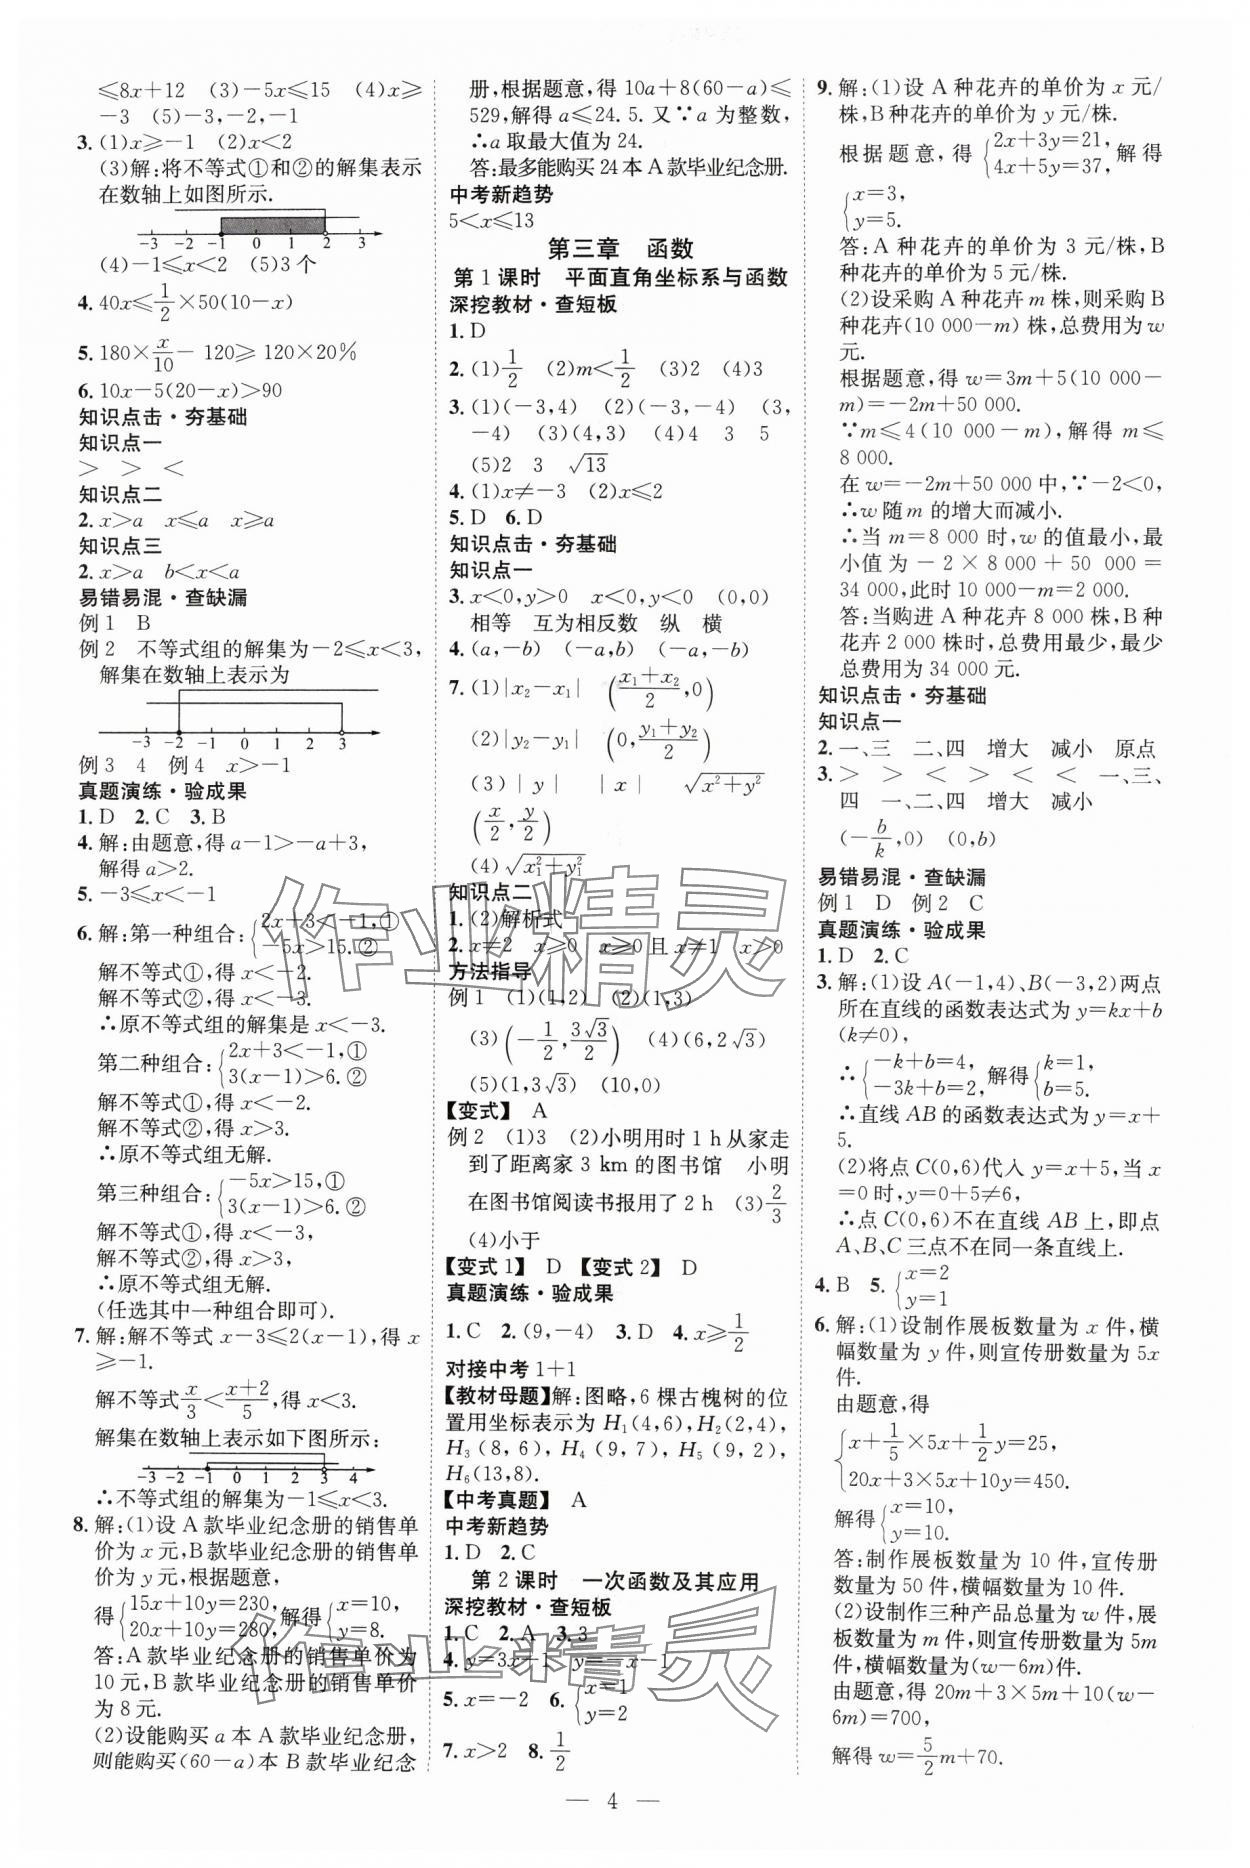 ≤8x+12　(3)-5x≤15　(4)x≥
-3　(5)-3,-2,-1
3. (1)x≥-1　(2)x<2
(3)解:将不等式①和②的解集表示
在数轴上如图所示.
-3 -2 -1 0 1 2 3
(4)-1≤x<2　(5)3个
4. 40x≤1/2×50(10-x)
5. 180×x/10-120≥120×20%
6. 10x-5(20-x)>90
知识点击·夯基础
知识点一
>　>　<
知识点二
2. x>a　x≤a　x≥a
知识点三
2. x>a　b<x<a
易错易混·查缺漏
例1　B
例2　不等式组的解集为-2≤x<3,
解集在数轴上表示为
-3 -2 -1 0 1 2 3
例3　4　例4　x>-1
真题演练·验成果
1. D　2. C　3. B
4. 解:由题意,得a-1>-a+3,
解得a>2.
5. -3≤x<-1
6. 解:第一种组合:{2x+3<-1,①
-5x>15.②
解不等式①,得x<-2.
解不等式②,得x<-3.
∴原不等式组的解集是x<-3.
第二种组合:{2x+3<-1,①
3(x-1)>6.②
解不等式①,得x<-2.
解不等式②,得x>3.
∴原不等式组无解.
第三种组合:{-5x>15,①
3(x-1)>6.②
解不等式①,得x<-3,
解不等式②,得x>3,
∴原不等式组无解.
(任选其中一种组合即可).
7. 解:解不等式x-3≤2(x-1),得x
≥-1.
解不等式x/3<(x+2)/5,得x<3.
解集在数轴上表示如下图所示:
-3 -2 -1 0 1 2 3 4
∴不等式组的解集为-1≤x<3.
8. 解:(1)设A款毕业纪念册的销售单
价为x元,B款毕业纪念册的销售单
价为y元,根据题意,
得{15x+10y=230, 20x+10y=280,解得{x=10, y=8.
答:A款毕业纪念册的销售单价为
10元,B款毕业纪念册的销售单价
为8元.
(2)设能购买a本A款毕业纪念册,
则能购买(60-a)本B款毕业纪念
册,根据题意,得10a+8(60-a)≤
529,解得a≤24.5.又∵a为整数,
∴a取最大值为24.
答:最多能购买24本A款毕业纪念册.
中考新趋势
5<x≤13
第三章　函数
第1课时　平面直角坐标系与函数
深挖教材·查短板
1. D
2. (1)1/2　(2)m<1/2　(3)2　(4)3
3. (1)(-3,4)　(2)(-3,-4)　(3,
-4)　(3)(4,3)　(4)4　3　5
(5)2　3　√13
4. (1)x≠-3　(2)x≤2
5. D　6. D
知识点击·夯基础
知识点一
3. x<0,y>0　x<0,y<0　(0,0)
相等　互为相反数　纵　横
4. (a,-b)　(-a,b)　(-a,-b)
7. (1)|x₂-x₁|　((x₁+x₂)/2,0)
(2)|y₂-y₁|　(0,(y₁+y₂)/2)
(3)|y|　|x|　√(x²+y²)
(x/2,y/2)
(4)√(x₁²+y₁²)
知识点二
1. (2)解析式
2. x≠2　x≥0　x≥0且x≠1　x>0
方法指导
例1　(1)(1,2)　(2)(1,3)
(3)(-1/2,3√3/2)　(4)(6,2√3)
(5)(1,3√3)　(10,0)
【变式】　A
例2　(1)3　(2)小明用时1 h从家走
到了距离家3 km的图书馆　小明
在图书馆阅读书报用了2 h　(3)2/3
(4)小于
【变式1】　D　【变式2】　D
真题演练·验成果
1. C　2. (9,-4)　3. D　4. x≥1/2
对接中考1+1
【教材母题】解:图略,6棵古槐树的位
置用坐标表示为H₁(4,6),H₂(2,4),
H₃(8,6),H₄(9,7),H₅(9,2),
H₆(13,8).
【中考真题】　A
中考新趋势
1. D　2. C
第2课时　一次函数及其应用
深挖教材·查短板
1. C　2. A　3. 3
4. y=3x-1　y=-x-1
5. x=-2　6. {x=1 y=2
7. x>2　8. 1/2
9. 解:(1)设A种花卉的单价为x元/
株,B种花卉的单价为y元/株.
根据题意,得{2x+3y=21, 4x+5y=37,解得
{x=3, y=5.
答:A种花卉的单价为3元/株,B
种花卉的单价为5元/株.
(2)设采购A种花卉m株,则采购B
种花卉(10 000-m)株,总费用为w
元.
根据题意,得w=3m+5(10 000-
m)=-2m+50 000.
∵m≤4(10 000-m),解得m≤
8 000.
在w=-2m+50 000中,∵-2<0,
∴w随m的增大而减小.
∴当m=8 000时,w的值最小,最
小值为-2×8 000+50 000=
34 000,此时10 000-m=2 000.
答:当购进A种花卉8 000株,B种
花卉2 000株时,总费用最少,最少
总费用为34 000元.
知识点击·夯基础
知识点一
2. 一、三　二、四　增大　减小　原点
3. >　>　<　>　<　<　一、三、
四　一、二、四　增大　减小
(-b/k,0)　(0,b)
易错易混·查缺漏
例1　D　例2　C
真题演练·验成果
1. D　2. C
3. 解:(1)设A(-1,4)、B(-3,2)两点
所在直线的函数表达式为y=kx+b
(k≠0),
∴{-k+b=4, -3k+b=2,解得{k=1, b=5.
∴直线AB的函数表达式为y=x+
5.
(2)将点C(0,6)代入y=x+5,当x
=0时,y=0+5≠6,
∴点C(0,6)不在直线AB上,即点
A、B、C三点不在同一条直线上.
4. B　5. {x=2 y=1
6. 解:(1)设制作展板数量为x件,横
幅数量为y件,则宣传册数量为5x
件.
由题意,得
{x+1/5×5x+1/2y=25,
20x+3×5x+10y=450.
解得{x=10, y=10.
答:制作展板数量为10件,宣传册
数量为50件,横幅数量为10件.
(2)设制作三种产品总量为w件,展
板数量为m件,则宣传册数量为5m
件,横幅数量为(w-6m)件.
由题意,得20m+3×5m+10(w-
6m)=700,
解得w=5/2m+70.
— 4 —
作业精灵
作业精灵